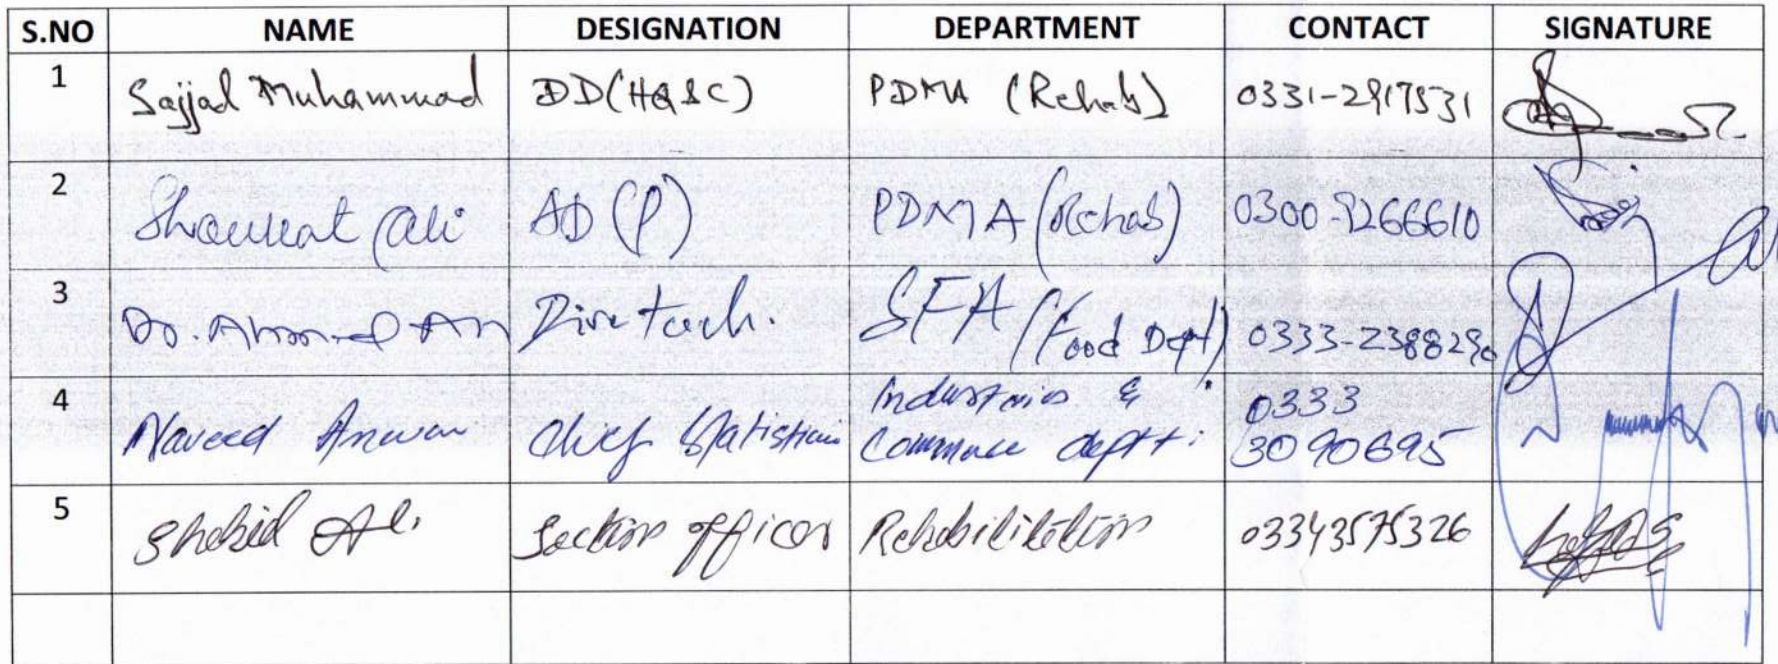 S.NO NAME DESIGNATION DEPARTMENT CONTACT SIGNATURE
1 Sajjad Muhammad DD(HQ&C) PDMA (Rehab) 0331-2917531
2 Shaukat Ali AD (P) PDMA (Rehab) 0300-9266610
3 Dr. Ahmed SFA (Food Dept)
4 Naveed Anwar Chief Industries &
Commerce deptt: 0333
3090695
5 Shahid Section officer Rehabilitation 03343575326